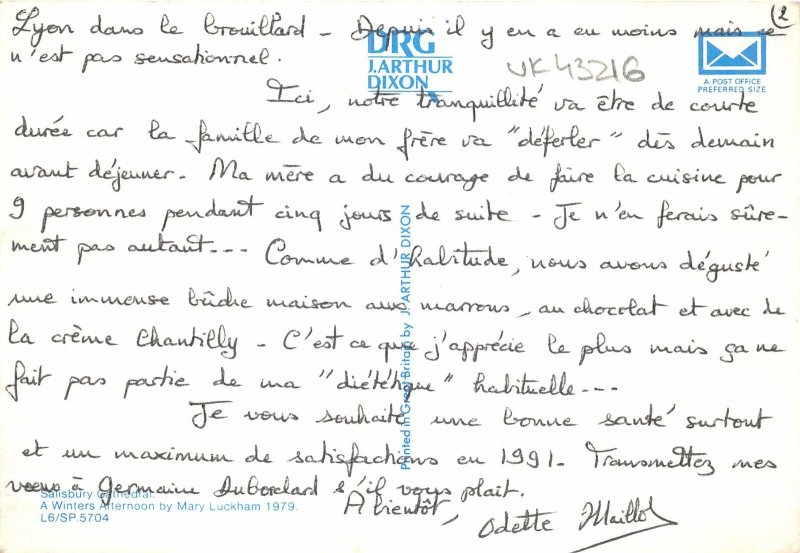 2
Lyon dans le brouillard - Depuis il y en a eu moins mais ce
n'est pas sensationnel.
DRG
J. ARTHUR
DIXON
UK 43216
A POST OFFICE
PREFERRED SIZE
Ici, notre tranquillité va être de courte
durée car la famille de mon frère va "déferler" dès demain
avant déjeuner. Ma mère a du courage de faire la cuisine pour
9 personnes pendant cinq jours de suite - Je n'en ferais sûre-
ment pas autant... Comme d'habitude, nous avons dégusté
une immense bûche maison aux marrons, au chocolat et avec de
la crème Chantilly - C'est ce que j'apprécie le plus mais ça ne
fait pas partie de ma "diététique" habituelle...
Je vous souhaite une bonne santé surtout
et un maximum de satisfactions en 1991. Transmettez mes
voeux à Germaine s'il vous plait.
A bientôt,
Odette Maillot
Printed in Great Britain by J. ARTHUR DIXON
Salisbury Cathedral.
A Winters Afternoon by Mary Luckham 1979.
L6/SP.5704